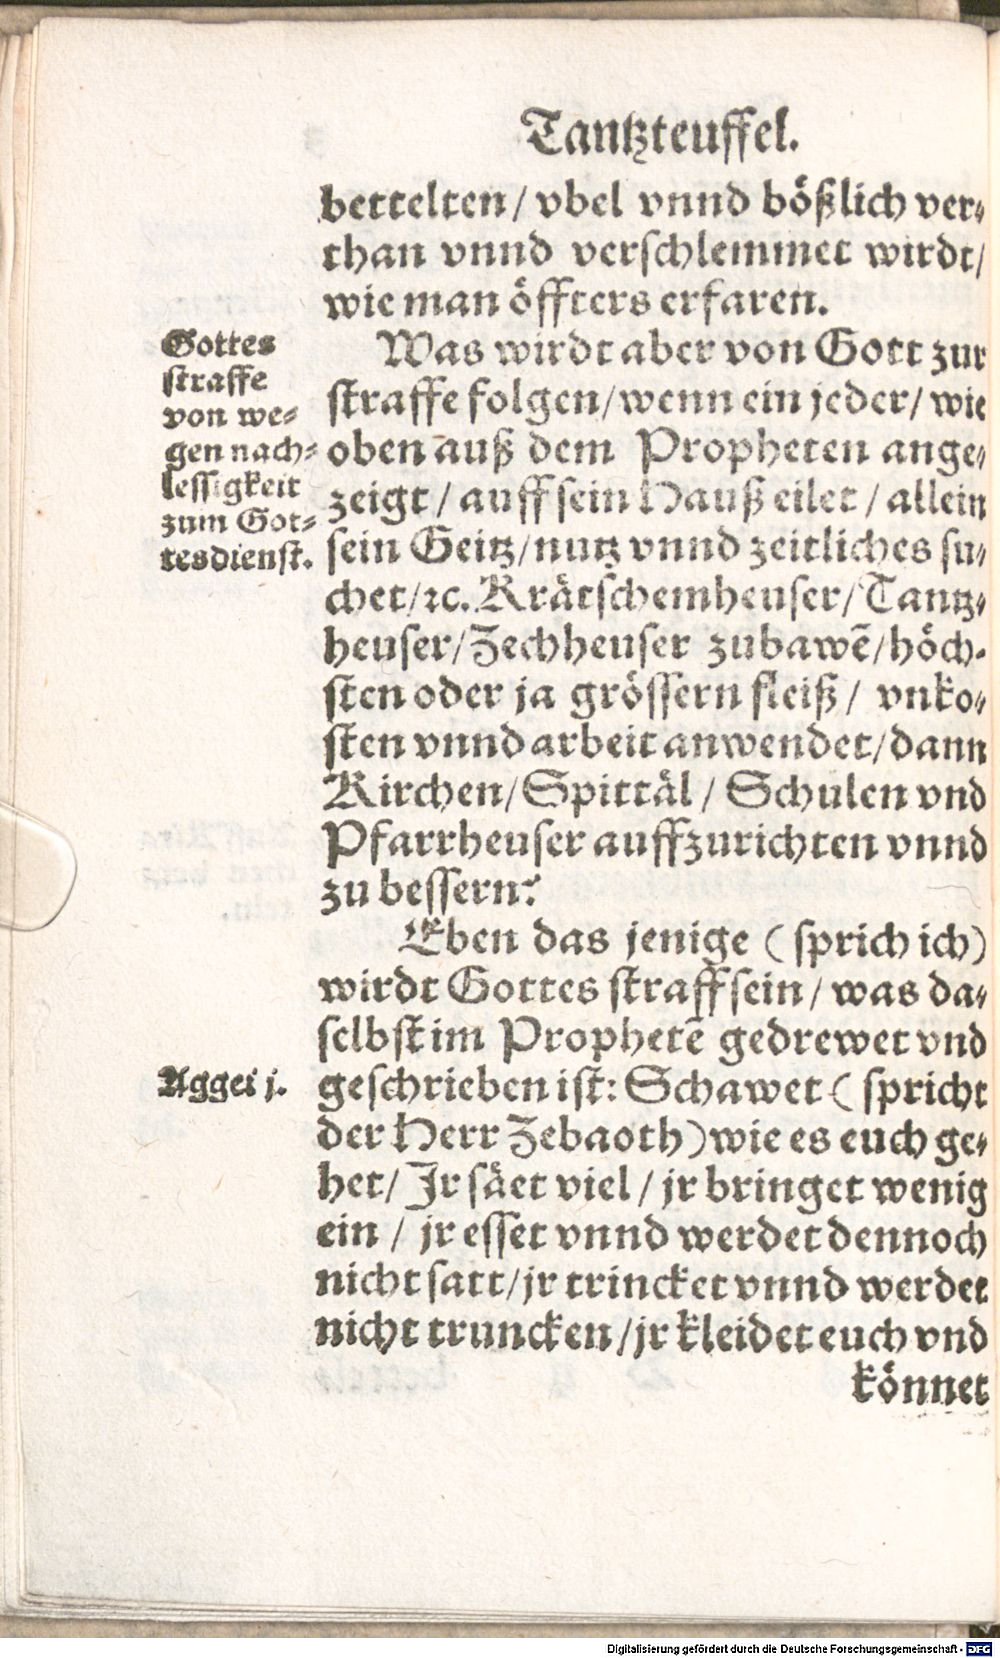 Tantzteuffel.
bettelten / vbel vnnd bößlich ver-
than vnnd verschlemmet wirdt /
wie man öffters erfaren.
Gottes
straffe
von we-
gen nach-
lessigkeit
zum Got-
tesdienst.
Was wirdt aber von Gott zur
straffe folgen / wenn ein jeder / wie
oben auß dem Propheten ange-
zeigt / auff sein Hauß eilet / allein
sein Geitz / nutz vnnd zeitliches su-
chet / ꝛc. Krätschemheuser / Tantz-
heuser / Zechheuser zubawē / höch-
sten oder ja grössern fleiß / vnko-
sten vnnd arbeit anwendet / dann
Kirchen / Spittäl / Schulen vnd
Pfarrheuser auffzurichten vnnd
zu bessern?
Eben das jenige ( sprich ich )
wirdt Gottes straff sein / was da-
selbst im Prophetē gedrewet vnd
Aggei j.
geschrieben ist: Schawet ( spricht
der Herr Zebaoth ) wie es euch ge-
het / Jr säet viel / jr bringet wenig
ein / jr esset vnnd werdet dennoch
nicht satt / jr trincket vnnd werdet
nicht truncken / jr kleidet euch vnd
können
Digitalisierung gefördert durch die Deutsche Forschungsgemeinschaft - DFG